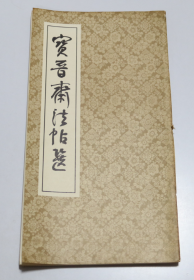 宝晋斋法帖选